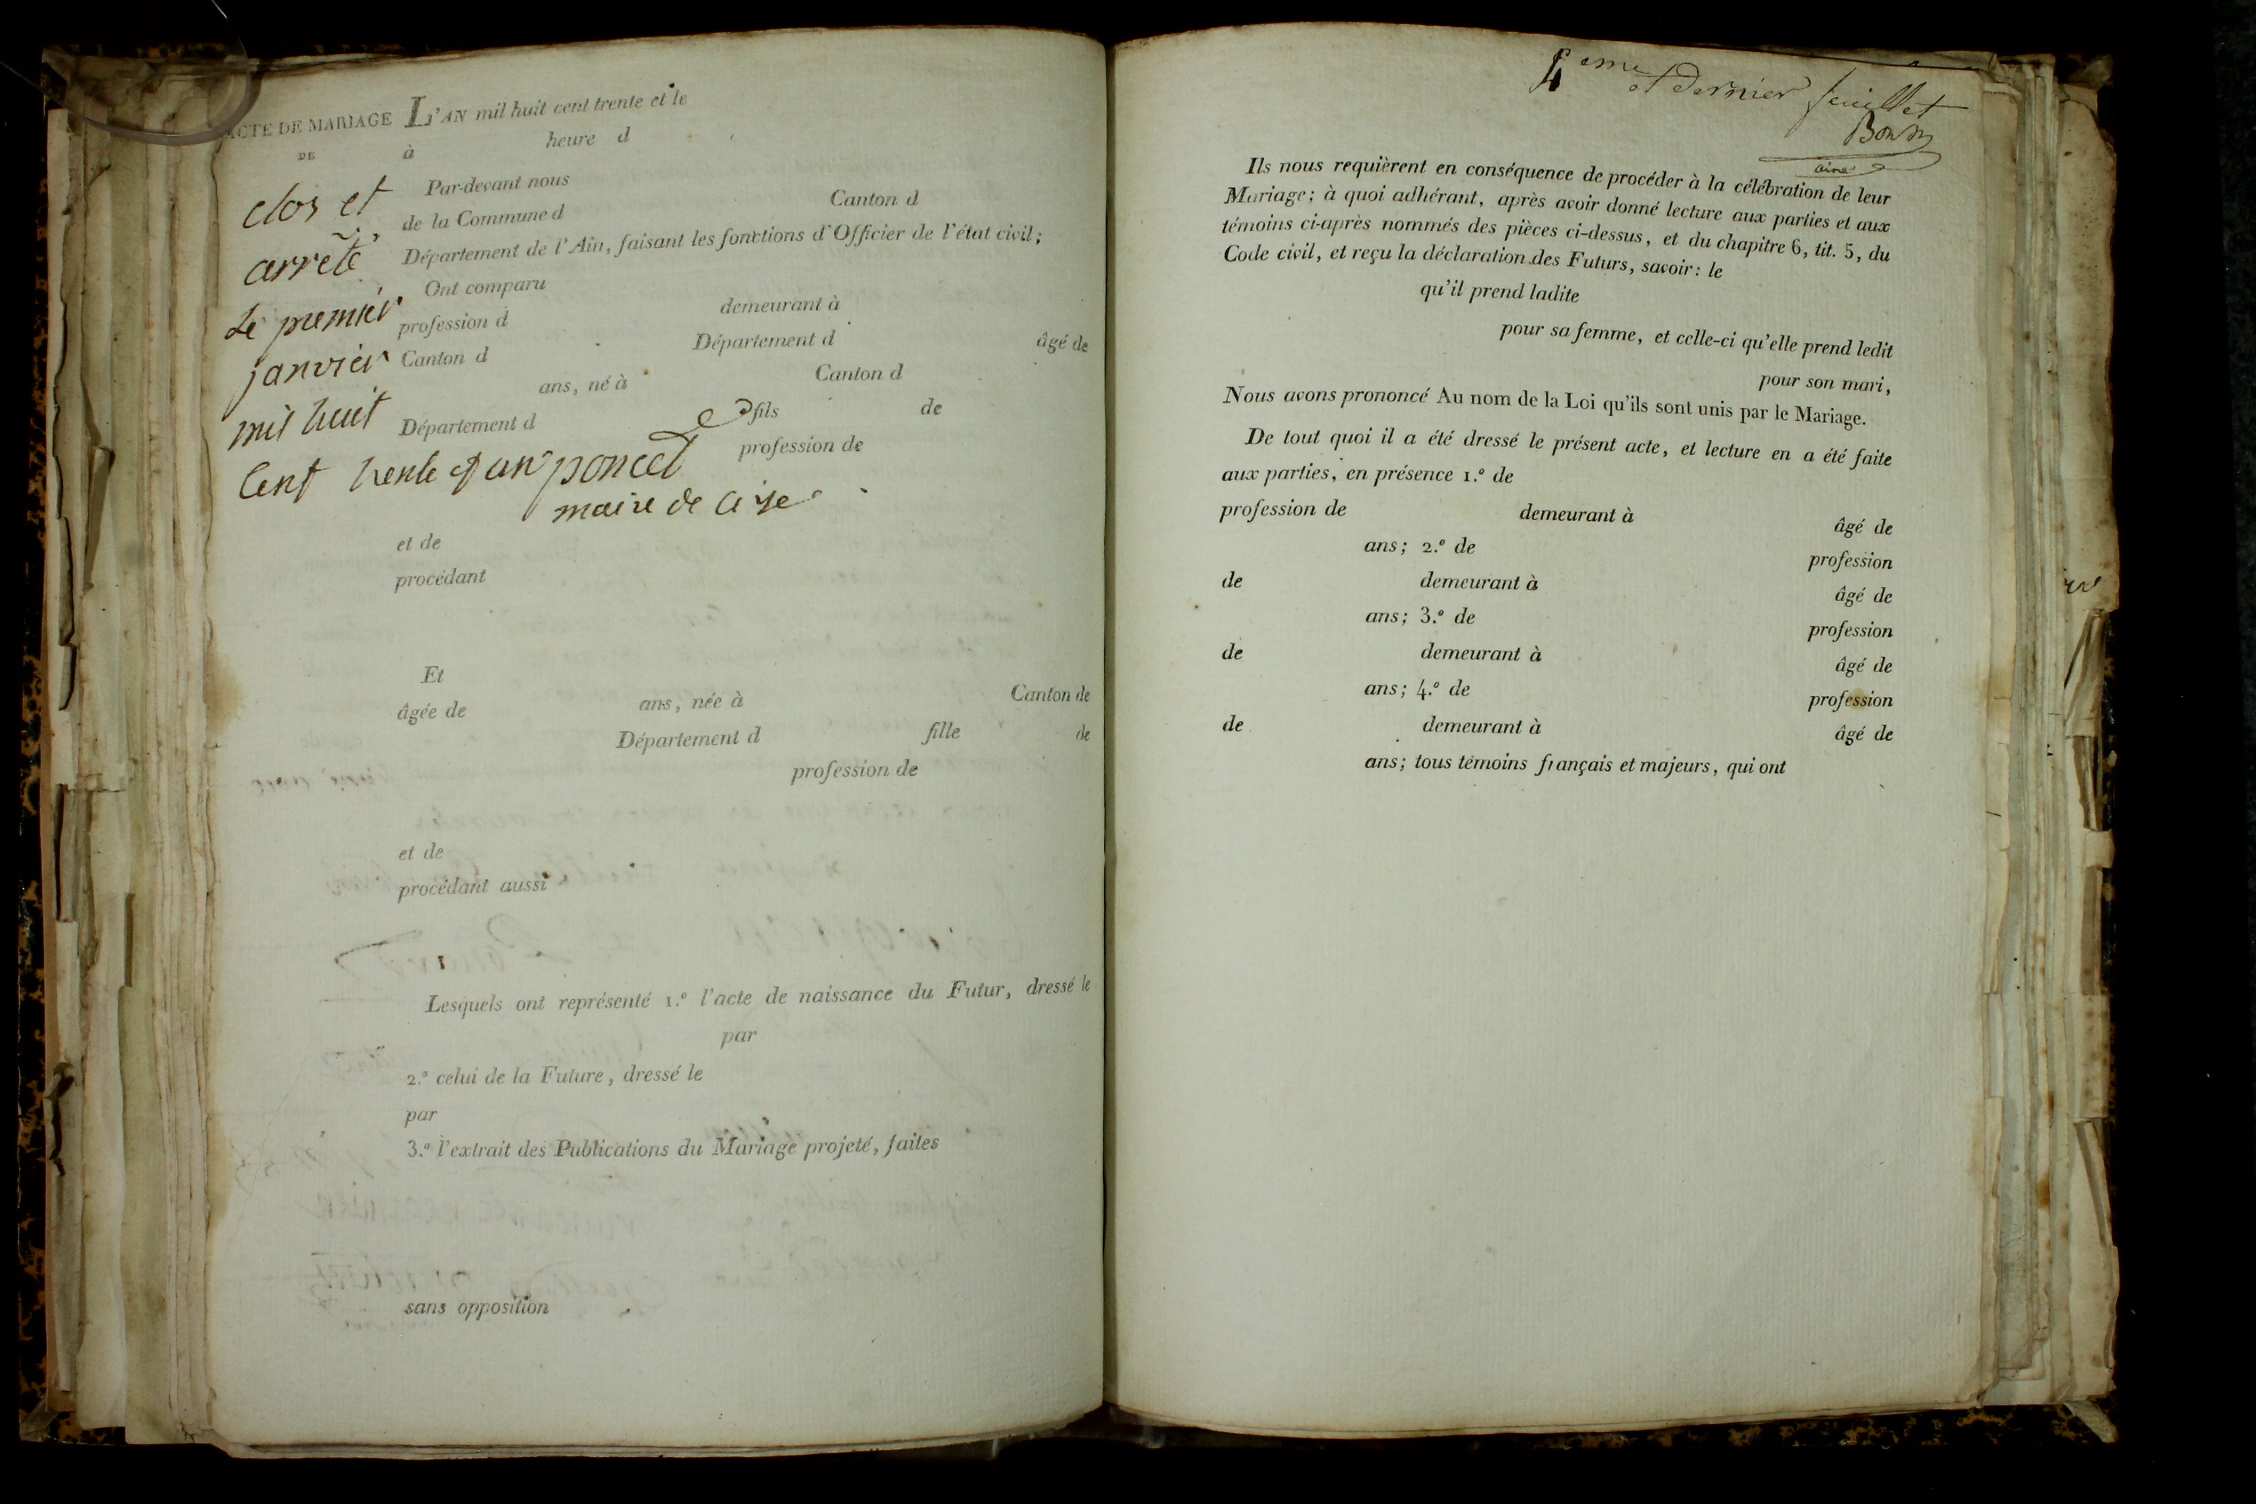 ACTE DE MARIAGE
DE
clos et
arreté
Le premier
janvier
mil huit
Cent trente et un poncet
maire de Cize
L'AN mil huit cent trente et le
à heure d
Par-devant nous
de la Commune d Canton d
Département de l'Ain, faisant les fonctions d'Officier de l'état civil;
Ont comparu
profession d demeurant à
Canton d Département d âgé de
ans, né à Canton d
Département d fils de
profession de
et de
procédant
Et
âgée de ans, née à Canton de
Département d fille de
profession de
et de
procédant aussi
Lesquels ont représenté 1.º l'acte de naissance du Futur, dressé le
par
2.º celui de la Future, dressé le
par
3.º l'extrait des Publications du Mariage projeté, faites
sans opposition
4eme et dernier feuillet
ainé
Ils nous requièrent en conséquence de procéder à la célébration de leur
Mariage; à quoi adhérant, après avoir donné lecture aux parties et aux
témoins ci-après nommés des pièces ci-dessus, et du chapitre 6, tit. 5, du
Code civil, et reçu la déclaration des Futurs, savoir: le
qu'il prend ladite
pour sa femme, et celle-ci qu'elle prend ledit
pour son mari,
Nous avons prononcé Au nom de la Loi qu'ils sont unis par le Mariage.
De tout quoi il a été dressé le présent acte, et lecture en a été faite
aux parties, en présence 1.º de
profession de demeurant à âgé de
ans; 2.º de profession
de demeurant à âgé de
ans; 3.º de profession
de demeurant à âgé de
ans; 4.º de profession
de demeurant à âgé de
ans; tous témoins français et majeurs, qui ont